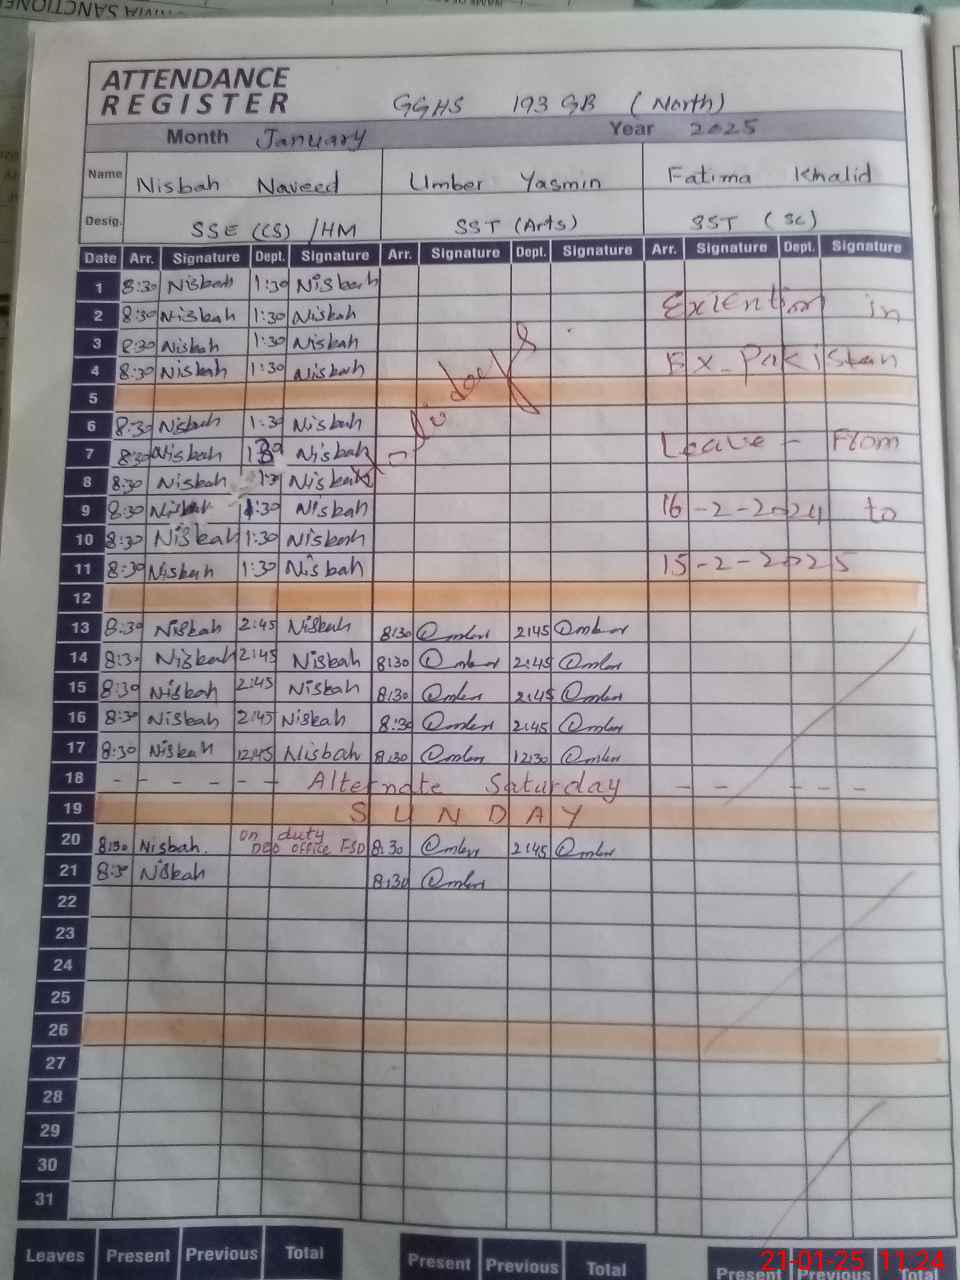 ATTENDANCE
REGISTER GGHS 193 GB (North)
Month January Year 2025
Name Nisbah Naveed Umber Yasmin Fatima Khalid
Desig. SSE (CS) /HM SST (Arts) SST (SC)
Date Arr. Signature Dept. Signature Arr. Signature Dept. Signature Arr. Signature Dept. Signature
1 8:30 Nisbah 1:30 Nisbah
2 8:30 Nisbah 1:30 Nisbah Extention in
3 8:30 Nisbah 1:30 Nisbah
4 8:30 Nisbah 1:30 Nisbah Ex-Pakistan
5
6 8:30 Nisbah 1:30 Nisbah
7 8:30 Nisbah 1:30 Nisbah Holidays Leave - From
8 8:30 Nisbah 1:30 Nisbah
9 8:30 Nisbah 1:30 Nisbah 16-2-2024 to
10 8:30 Nisbah 1:30 Nisbah
11 8:30 Nisbah 1:30 Nisbah 15-2-2025
12
13 8:30 Nisbah 2:45 Nisbah 8:30 Umber 2:45 Umber
14 8:30 Nisbah 2:45 Nisbah 8:30 Umber 2:45 Umber
15 8:30 Nisbah 2:45 Nisbah 8:30 Umber 2:45 Umber
16 8:30 Nisbah 2:45 Nisbah 8:30 Umber 2:45 Umber
17 8:30 Nisbah 12:45 Nisbah 8:30 Umber 12:30 Umber
18 - - - - - - Alternate Saturday - - - - -
19 SUNDAY
20 8:30 Nisbah. on duty DEO office FSD 8:30 Umber 2:45 Umber
21 8:30 Nisbah 8:30 Umber
22
23
24
25
26
27
28
29
30
31
Leaves Present Previous Total Present Previous Total Present Previous Total
21-01-25 11:24